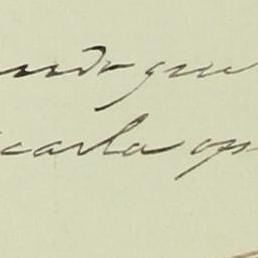 ndo que
carla op